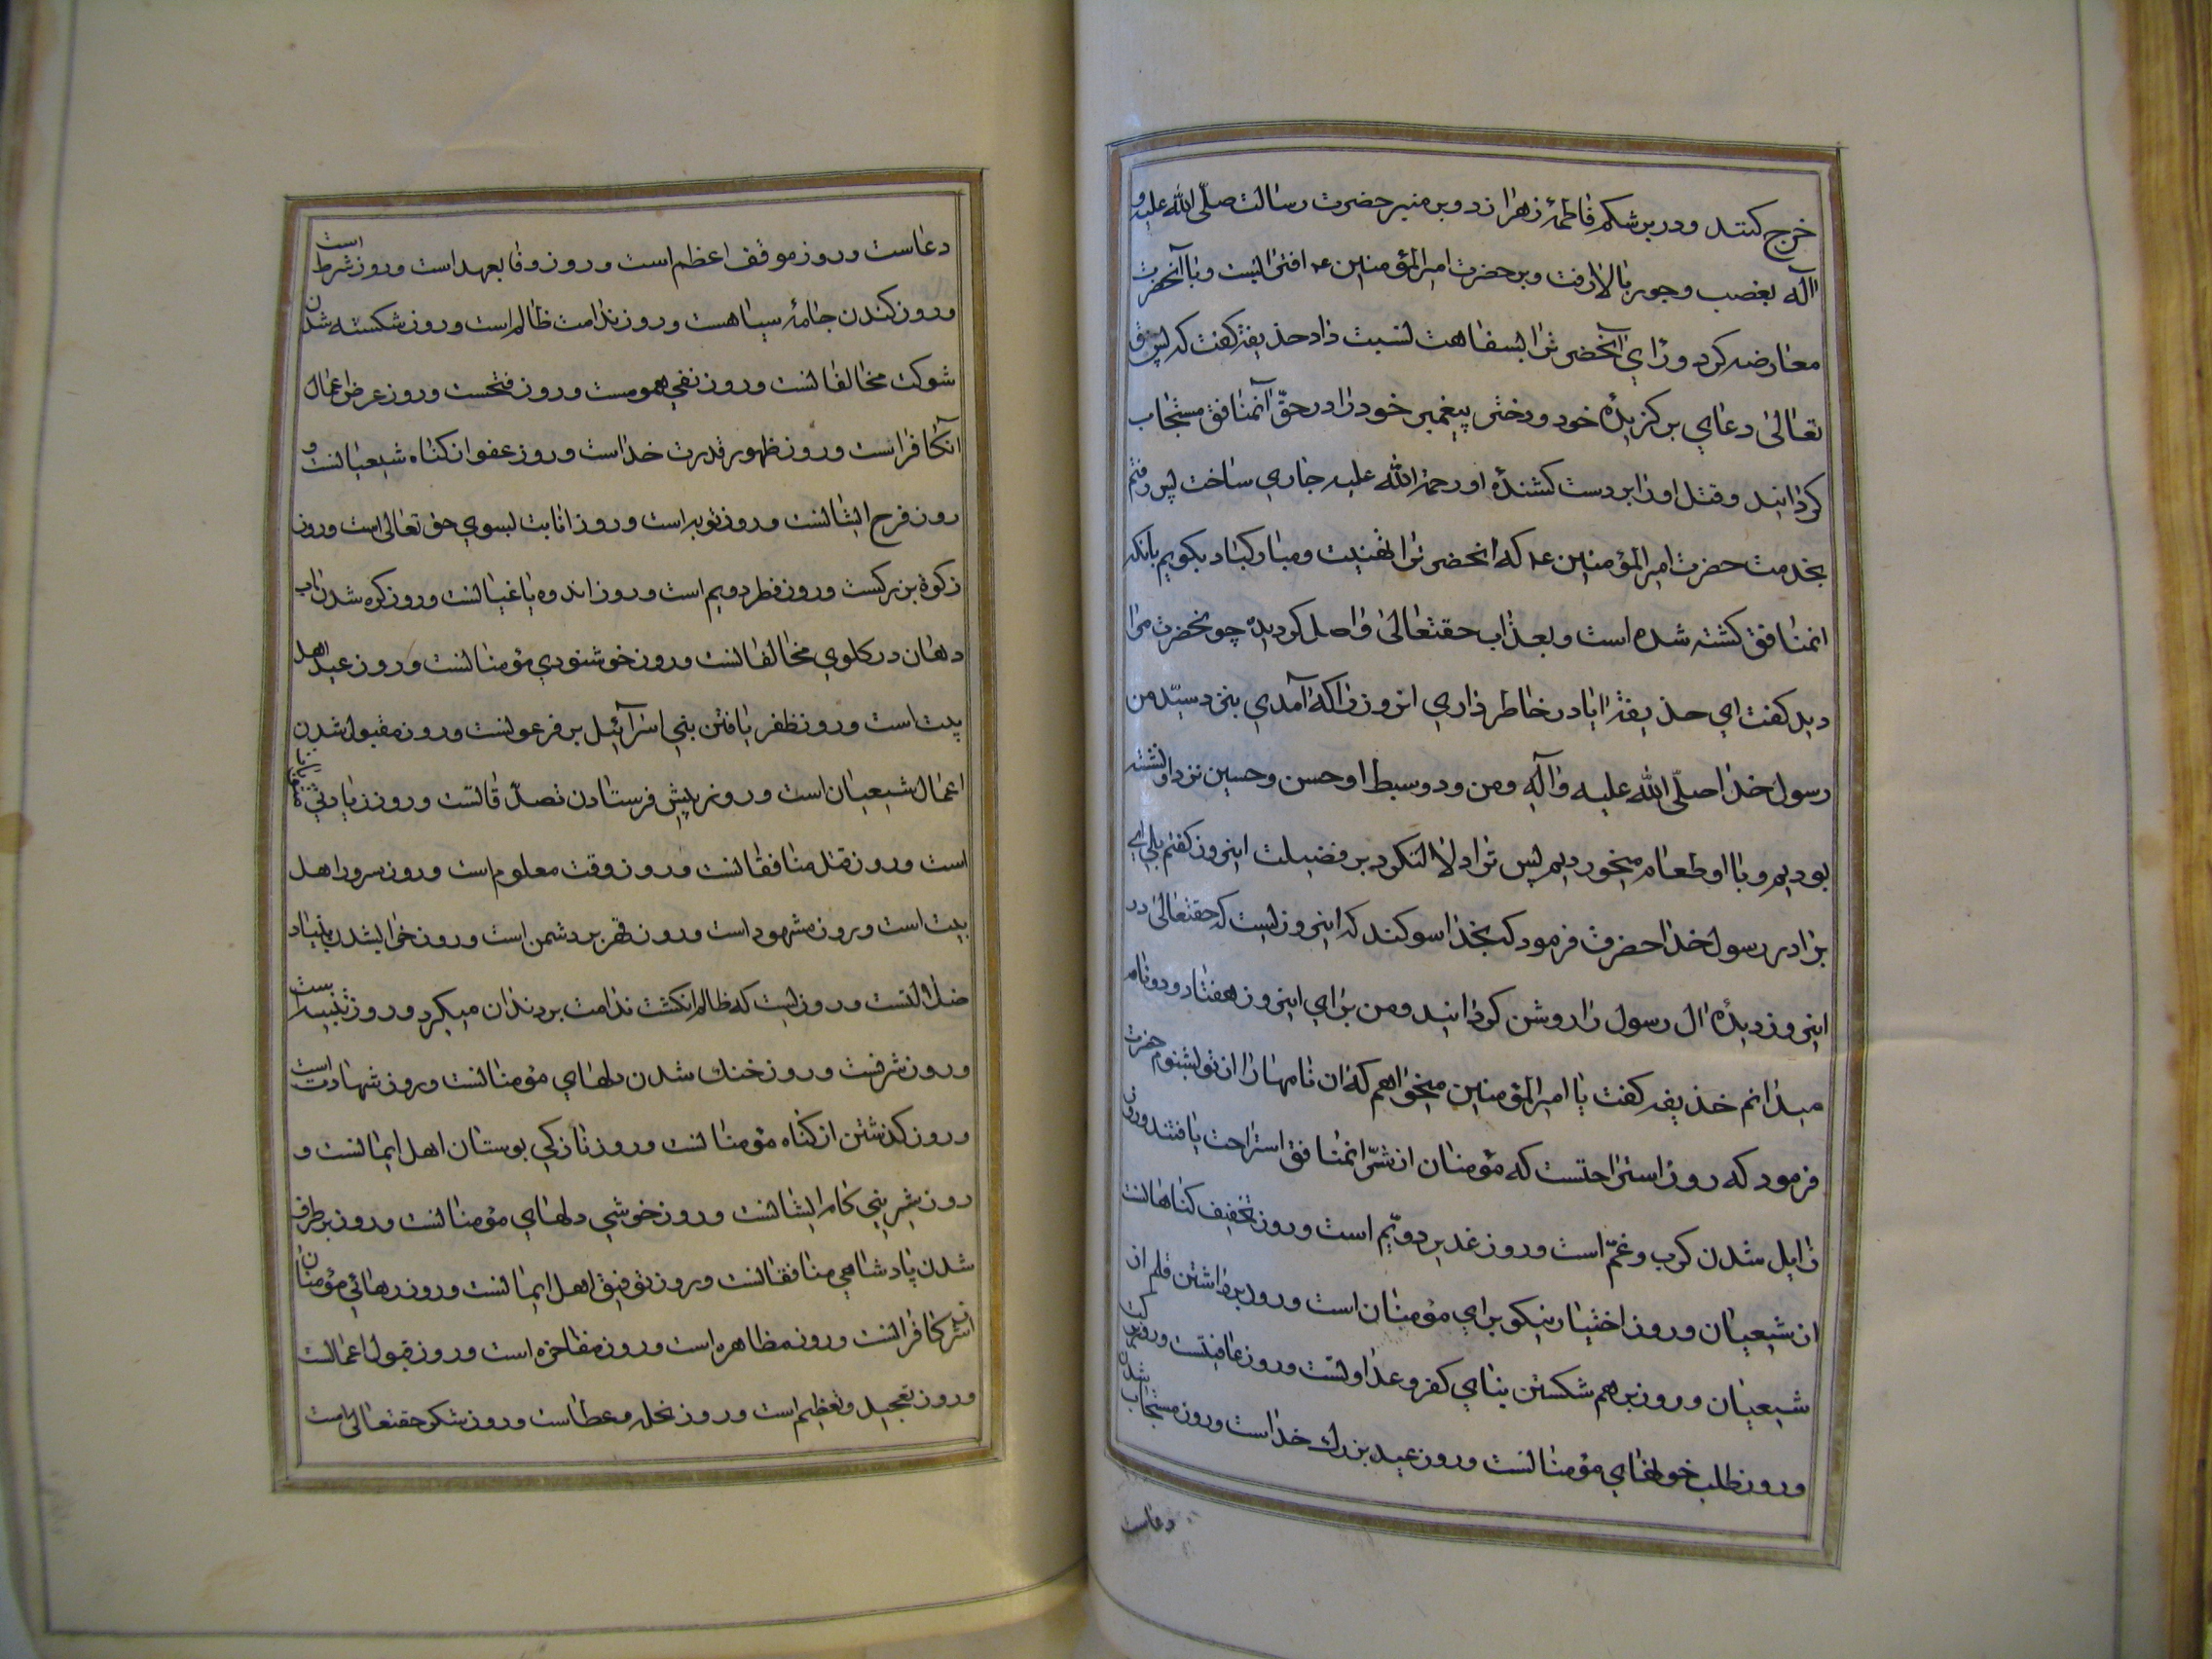 خرج کنند و در بر شکم فاطمهٔ زهرا زد و بر منبر حضرت رسالت صلّی الله علیه و
آله بغصب و جور بالا رفت و بر حضرت امیرالمؤمنین ع افترا بست و با آنحضرت
معارضه کرد و رای آنحضرت را بسفاهت نسبت داد حذیفه گفت که پس حق
تعالی دعای برگزیدهٔ خود و دختر پیغمبر خود را در حقّ آنمنافق مستجاب
گردانید و قتل او را بر دست کشندهٔ او رحمة الله علیه جاری ساخت پس رفتم
بخدمت حضرت امیرالمؤمنین ع که آنحضرت را تهنیت و مبارکباد بگویم بانکه
انمنافق کشته شده است و بعذاب حقتعالی واصل گردیده چو نحضرت مرا
دید گفت ای حذیفه ایا در خاطر داری انروز را که آمدی بنزد سیّد من
رسول خدا صلّی الله علیه وآله و من و دو سبط او حسن و حسین نزد او نشسته
بودیم و با او طعام میخوردیم پس ترا دلالت کرد بر فضیلت اینروز گفتم بلی ای
برادر رسول خدا حضرت فرمود که بخدا سوکند که اینروزیست که حقتعالی در
اینروز دیدهٔ ال رسول را روشن کردانید و من برای اینروز هفتاد و دو نام
میدانم حذیفه گفت یا امیرالمؤمنین میخواهم که ان نامها را از تو بشنوم حضرت
فرمود که روز استراحتست که مؤمنان از شرّ انمنافق استراحت یافتند و روز
زایل شدن کرب و غمّ است و روز غدیر دویّم است و روز تخفیف کناهانست
از شیعیان و روز اختیار نیکو برای مؤمنان است و روز برداشتن قلم از
شیعیان و روز برهم شکستن بنای کفر و عداوتست و روز عافیتست و روز برکت
و روز طلب خونهای مؤمنانست و روز عید بزرک خداست و روز مستجاب شدن
دعاست
دعاست و روز موقف اعظم است و روز وفا بعهد است و روز شرط است
و روز کندن جامهٔ سیاهست و روز ندامت ظالم است و روز شکسته شدن
شوکت مخالفانست و روز نفی همومست و روز فتحست و روز عرض اعمال
انکافراست و روز ظهور قدرت خداست و روز عفو از کناه شیعیانست و
روز فرح ایشانست و روز توبه است و روز انابت بسوی حق تعالی است و روز
زکوة بزرکست و روز فطر دویم است و روز اندوه یاغیانست و روز کره شدن آب
دهان در کلوی مخالفانست و روز خوشنودی مؤمنانست و روز عید اهل
بیت است و روز ظفر یافتن بنی اسرآئیل بر فرعونست و روز مقبول شدن
اعمال شیعیان است و روز پیش فرستادن تصدّقاتست و روز زیادتی
است و روز قتل منافقانست و روز وقت معلوم است و روز سرور اهل
بیت است و روز مشهود است و روز قهر بر دشمن است و روز خراب شدن بنیاد
ضلالتست و روزیست که ظالم انکشت ندامت بردندان میکرد و روز تنبیه است
و روز شرفست و روز خنك شدن دلهای مؤمنانست و روز شهادت است
و روز کذشتن از کناه مؤمنانست و روز تازکی بوستان اهل ایمانست و
روز شیرینی کام ایشانست و روز خوشی دلهای مؤمنانست و روز برطرف
شدن پادشاهی منافقانست و روز توفیق اهل ایمانست و روز رهائی مؤمنان
از شر کافرانست و روز مظاهره است و روز مفاخره است و روز قبول اعمالست
و روز تبجیل و تعظیم است و روز نحله و عطاست و روز شکر حقتعالی است